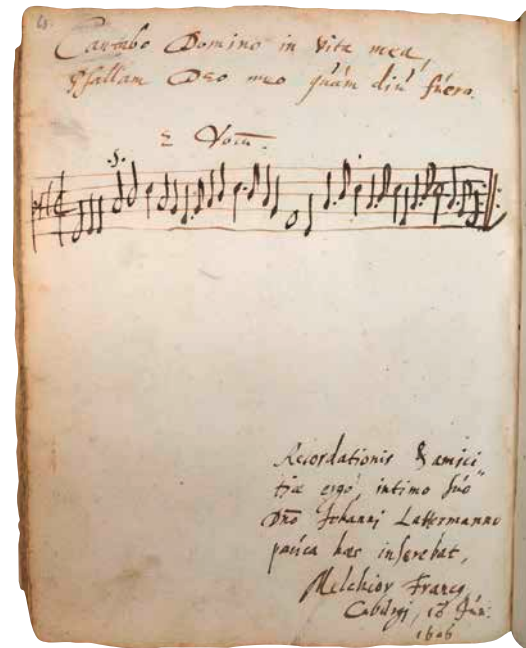 Cantabo Domino in Vita mea,
Psallam Deo meo quám diú fúero.
2 Vocu.
.S.
Recordationis & amici„
tiæ ergò, intimo súo
Dno Johanni Lattermanno
paúca hæc inserebat,
Melchior Franck
Cobúrgj, 18 Jún:
1606